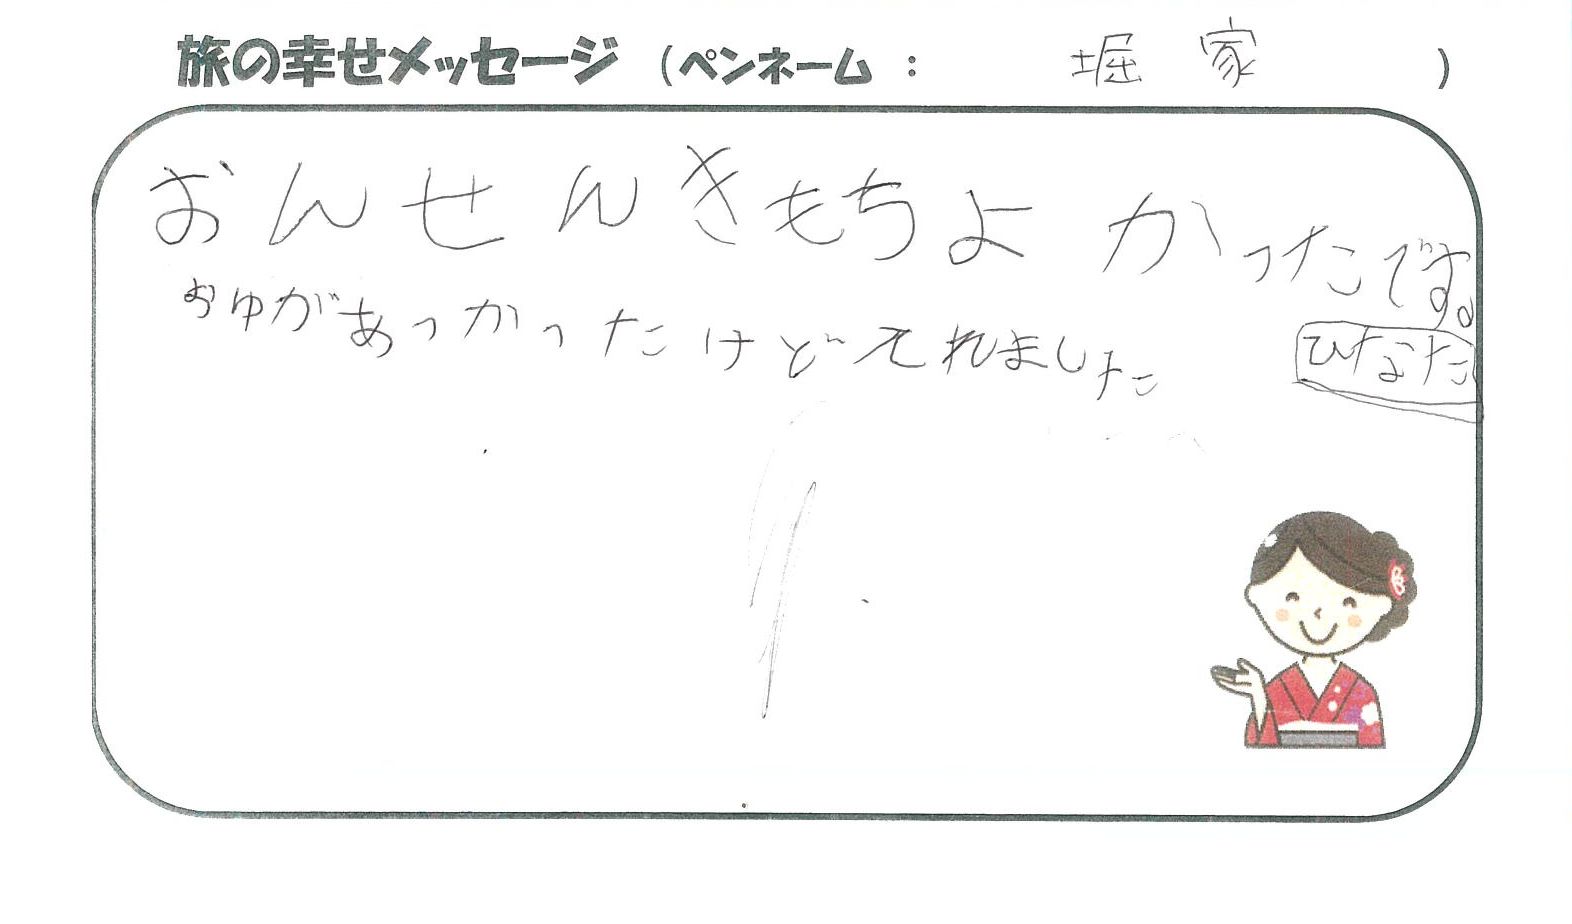 旅の幸せメッセージ （ペンネーム： 堀 家 ）
おんせんきもちよかったです。
おゆがあつかったけどそれました
ひなた